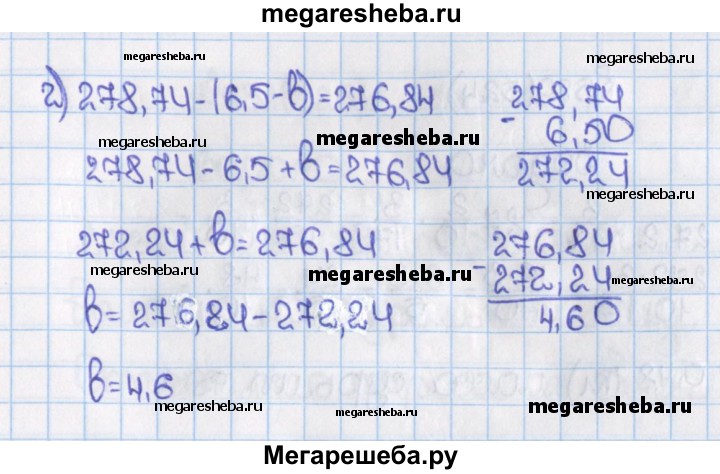 megaresheba.ru
megaresheba.ru megaresheba.ru
г) 278,74-(6,5-в)=276,84 278,74
megaresheba.ru - 6,50
278,74-6,5+в=276,84 272,24
272,24+в=276,84 276,84
megaresheba.ru megaresheba.ru - 272,24 megaresheba.ru
в=276,84-272,24 4,60
в=4,6
megaresheba.ru megaresheba.ru megaresheba.ru
Мегарешеба.ру